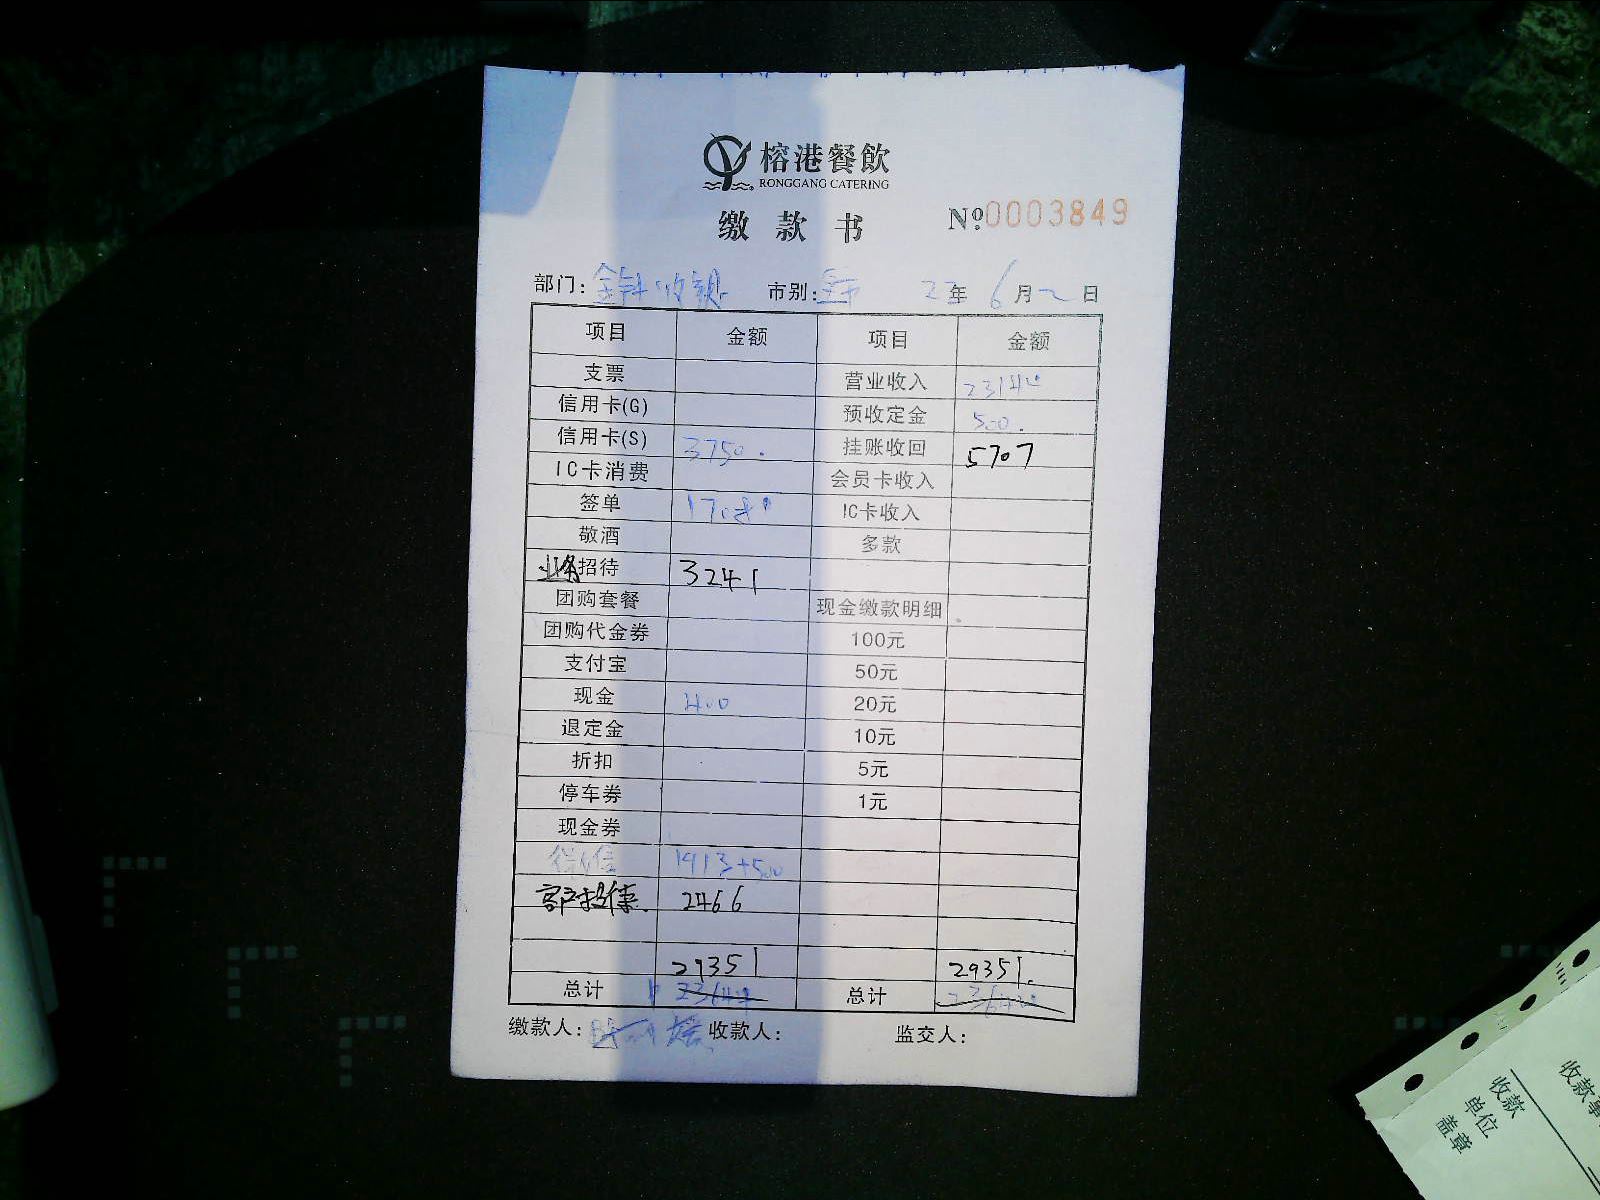 榕港餐飲
RONGGANG CATERING
缴款书 №0003849
部门: 市别: 22年6月2日
项目 金额 项目 金额
支票 营业收入 23144
信用卡(G) 预收定金 500.
信用卡(S) 3750. 挂账收回 5707
IC卡消费 会员卡收入
签单 IC卡收入
敬酒 多款
业务招待 3241
团购套餐 现金缴款明细
团购代金券 100元
支付宝 50元
现金 400 20元
退定金 10元
折扣 5元
停车券 1元
现金券
微信 1913+500
客户招待 2466
29351 29351.
总计 23644 总计
缴款人: 收款人: 监交人:
收款
单位
盖章
收款事